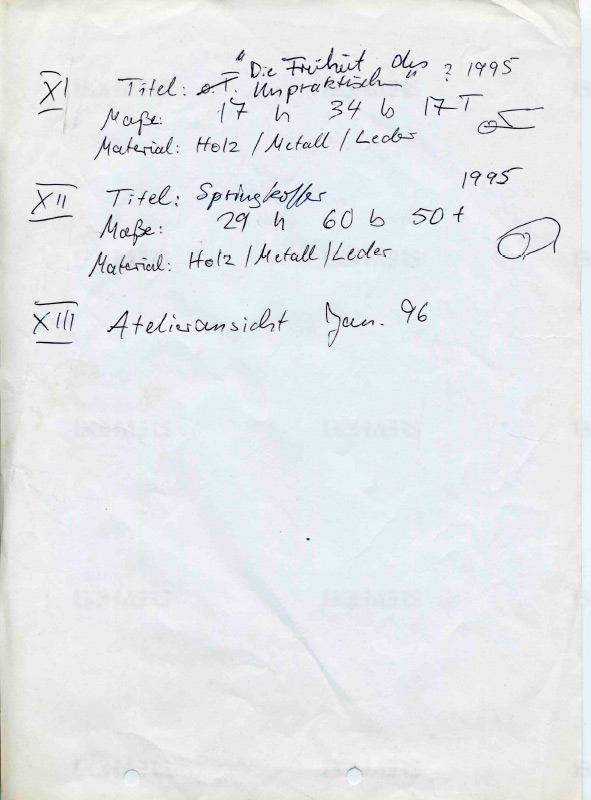 "Die Freiheit des ? 1995
XI Titel: o.T. Unpraktischen"
Maße: 17 h 34 b 17 T
Material: Holz / Metall / Leder
1995
XII Titel: Springkoffer
Maße: 29 h 60 b 50 t
Material: Holz / Metall / Leder
XIII Atelieransicht Jan. 96